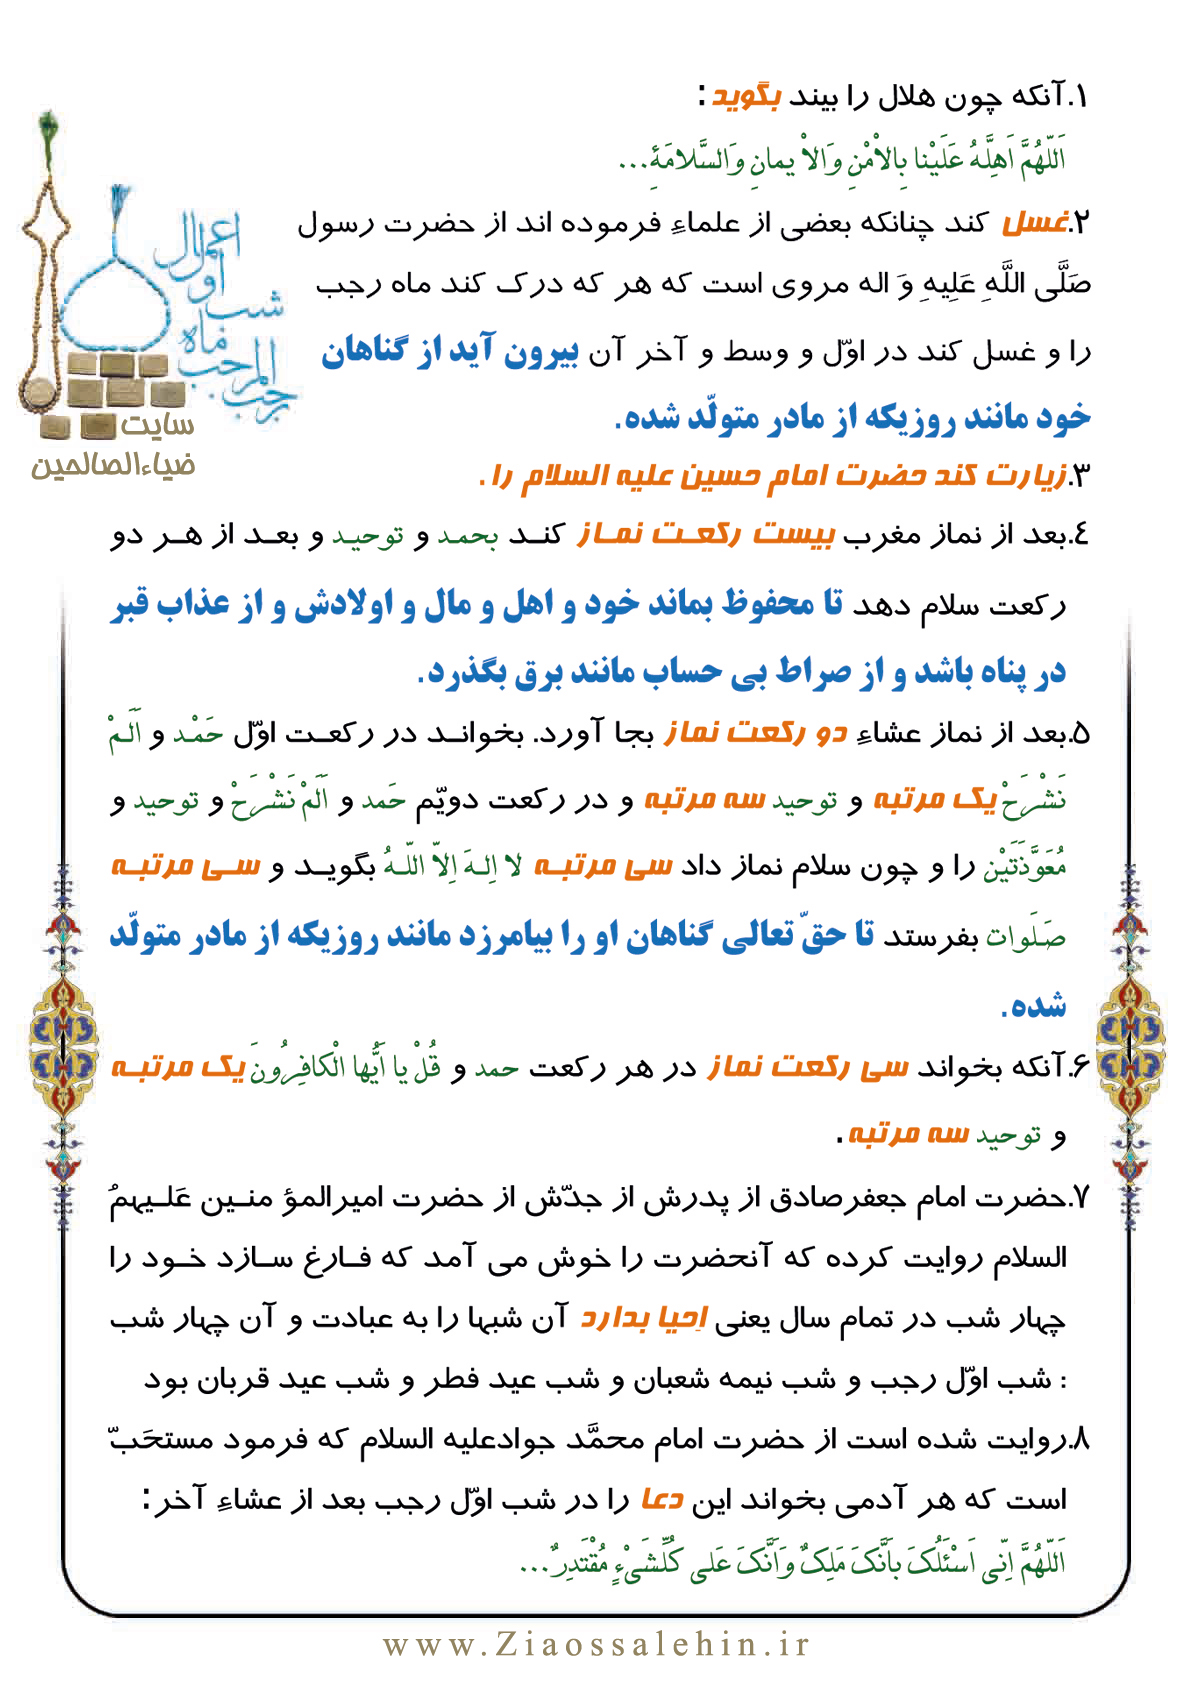 ۱.آنکه چون هلال را بیند بگوید:
اَللّهُمَّ اَهِلَّهُ عَلَیْنا بِالاْمْنِ وَالاْ یمانِ وَالسَّلامَةِ...
۲.غسل کند چنانکه بعضی از علماءِ فرموده اند از حضرت رسول
صَلَّی اللَّهِ عَلِیهِ وَ اله مروی است که هر که درک کند ماه رجب
را و غسل کند در اوّل و وسط و آخر آن بیرون آید از گناهان
خود مانند روزیکه از مادر متولّد شده.
۳.زیارت کند حضرت امام حسین علیه السلام را.
٤.بعد از نماز مغرب بیست رکعت نماز کند بحمد و توحید و بعد از هر دو
رکعت سلام دهد تا محفوظ بماند خود و اهل و مال و اولادش و از عذاب قبر
در پناه باشد و از صراط بی حساب مانند برق بگذرد.
۵.بعد از نماز عشاءِ دو رکعت نماز بجا آورد. بخواند در رکعت اوّل حَمْد و اَلَمْ
نَشْرَحْ یک مرتبه و توحید سه مرتبه و در رکعت دویّم حَمد و اَلَمْ نَشْرَحْ و توحید و
مُعَوَّذَتَیْن را و چون سلام نماز داد سی مرتبه لا اِلهَ اِلاّ اللّهُ بگوید و سی مرتبه
صَلَوات بفرستد تا حقّ تعالی گناهان او را بیامرزد مانند روزیکه از مادر متولّد
شده.
۶.آنکه بخواند سی رکعت نماز در هر رکعت حمد و قُلْ یا اَیُّها الْکافِرُونَ یک مرتبه
و توحید سه مرتبه.
۷.حضرت امام جعفرصادق از پدرش از جدّش از حضرت امیرالمؤ منین عَلیهمُ
السلام روایت کرده که آنحضرت را خوش می آمد که فارغ سازد خود را
چهار شب در تمام سال یعنی اِحیا بدارد آن شبها را به عبادت و آن چهار شب
: شب اوّل رجب و شب نیمه شعبان و شب عید فطر و شب عید قربان بود
۸.روایت شده است از حضرت امام محمَّد جوادعلیه السلام که فرمود مستحَبّ
است که هر آدمی بخواند این دعا را در شب اوّل رجب بعد از عشاءِ آخر:
اَللّهُمَّ اِنّی اَسْئَلُکَ بِاَنَّکَ مَلِکٌ وَاَنَّکَ عَلی کُلِّشَیْءٍ مُقْتَدِرٌ...
اعمال
شب اول
ماه
رجب المرجب
سایت
ضیاءالصالحین
www.Ziaossalehin.ir